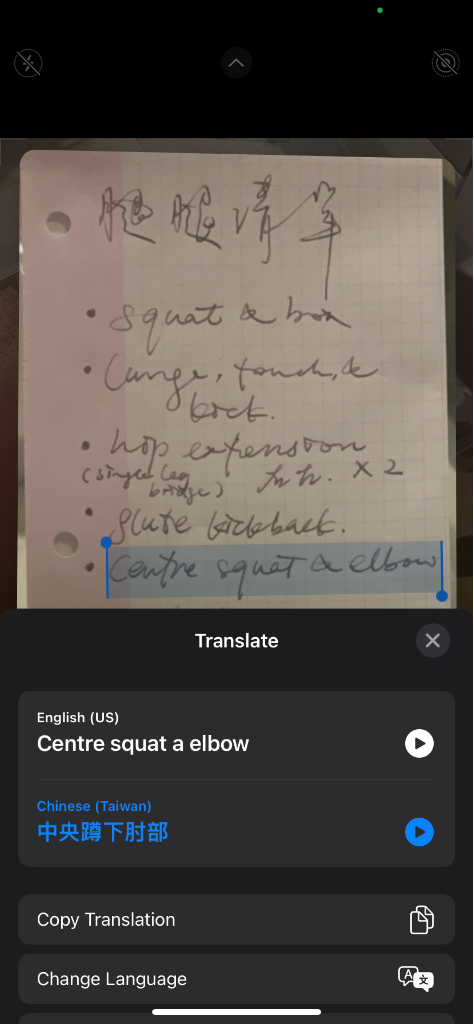 腿腿清單
• squat & box
• Lunge, touch, &
kick.
• hop extension
(single leg
bridge) ×2
• glute kickback.
• Centre squat & elbow
Translate
English (US)
Centre squat a elbow
Chinese (Taiwan)
中央蹲下肘部
Copy Translation
Change Language